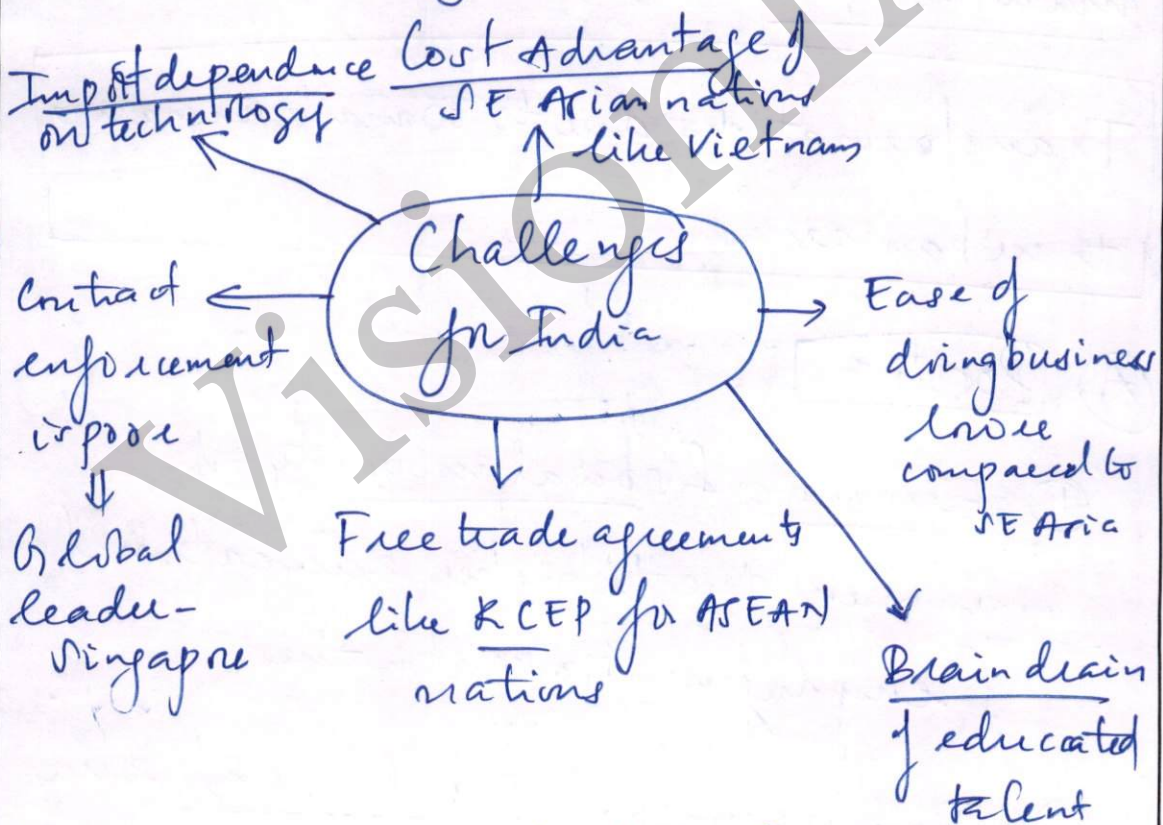 Import dependence
on technology
Cost Advantage of
SE Asian nations
like Vietnam
Challenges
for India
Contract
enforcement
is poor
⇓
Global
leader-
Singapore
Ease of
doing business
lower
compared to
SE Asia
Free trade agreements
like RCEP for ASEAN
nations
Brain drain
of educated
talent
Vision